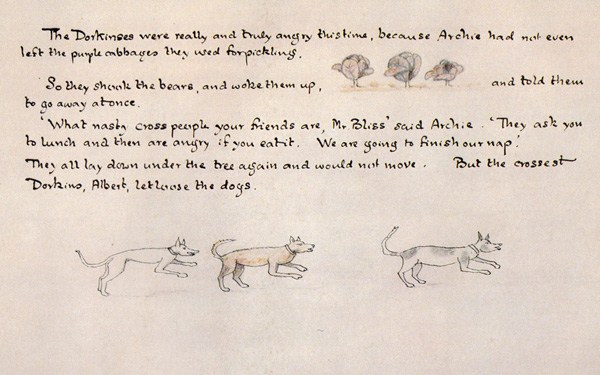 The Dorkinses were really and truly angry this time, because Archie had not even
left the purple cabbages they used for pickling.
So they shook the bears, and woke them up, and told them
to go away at once.
'What nasty cross people your friends are, Mr Bliss' said Archie. 'They ask you
to lunch and then are angry if you eat it. We are going to finish our nap.'
They all lay down under the tree again and would not move. But the crossest
Dorkins, Albert, let loose the dogs.